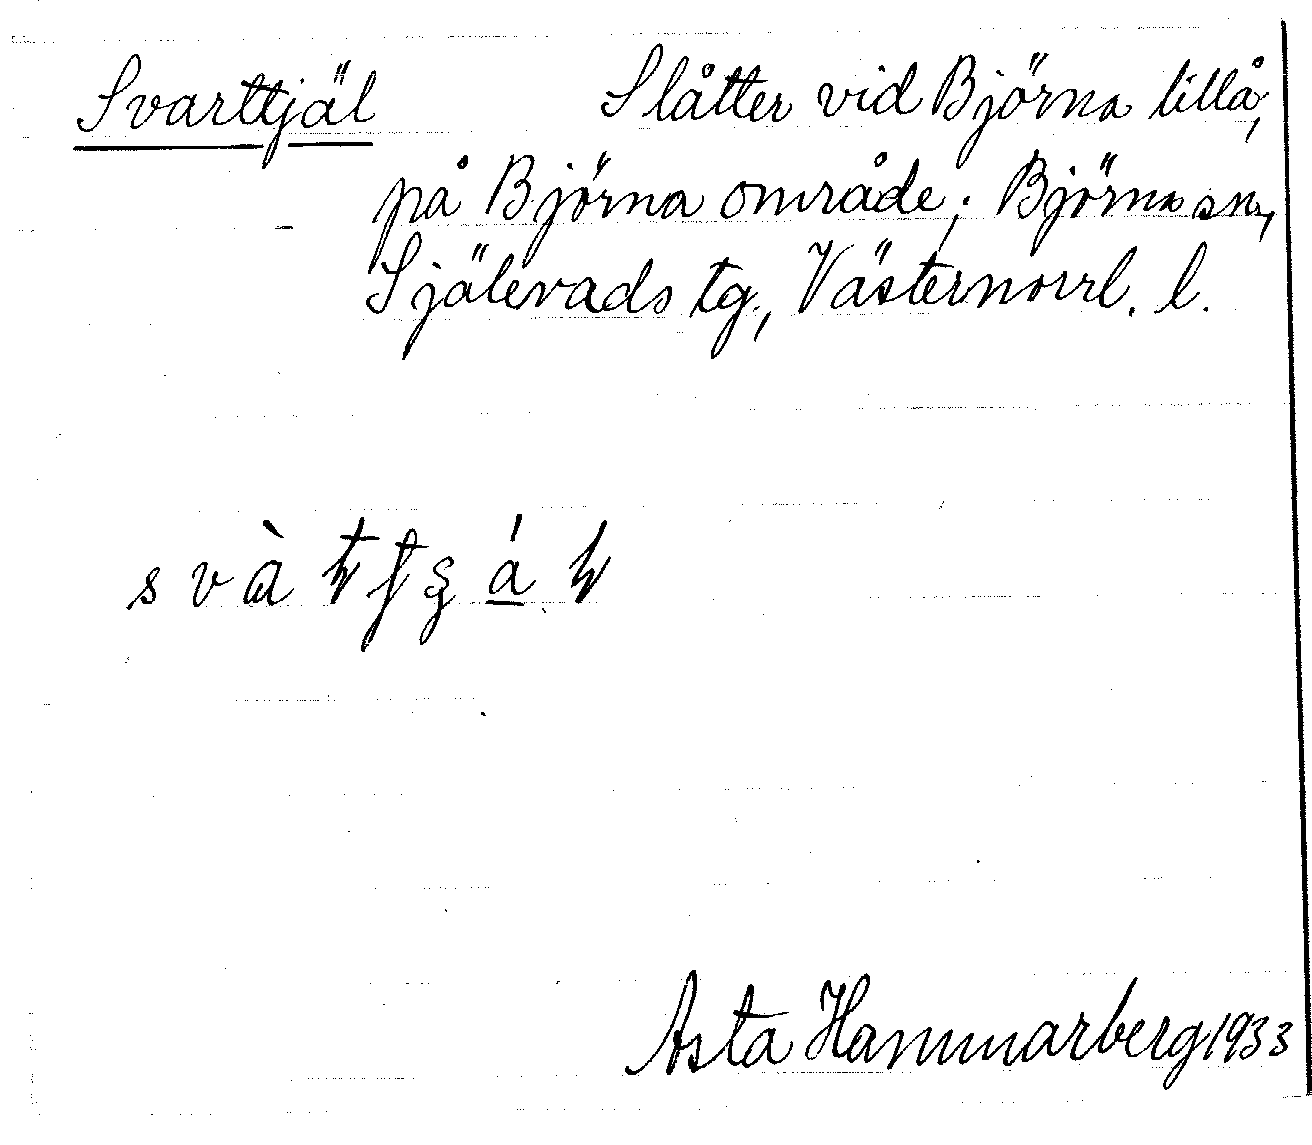 Svarttjäl Slåtter vid Björna lillå,
på Björna område; Björna sn,
Själevads tg., Västernorrl. l.
Asta Hammarberg 1933